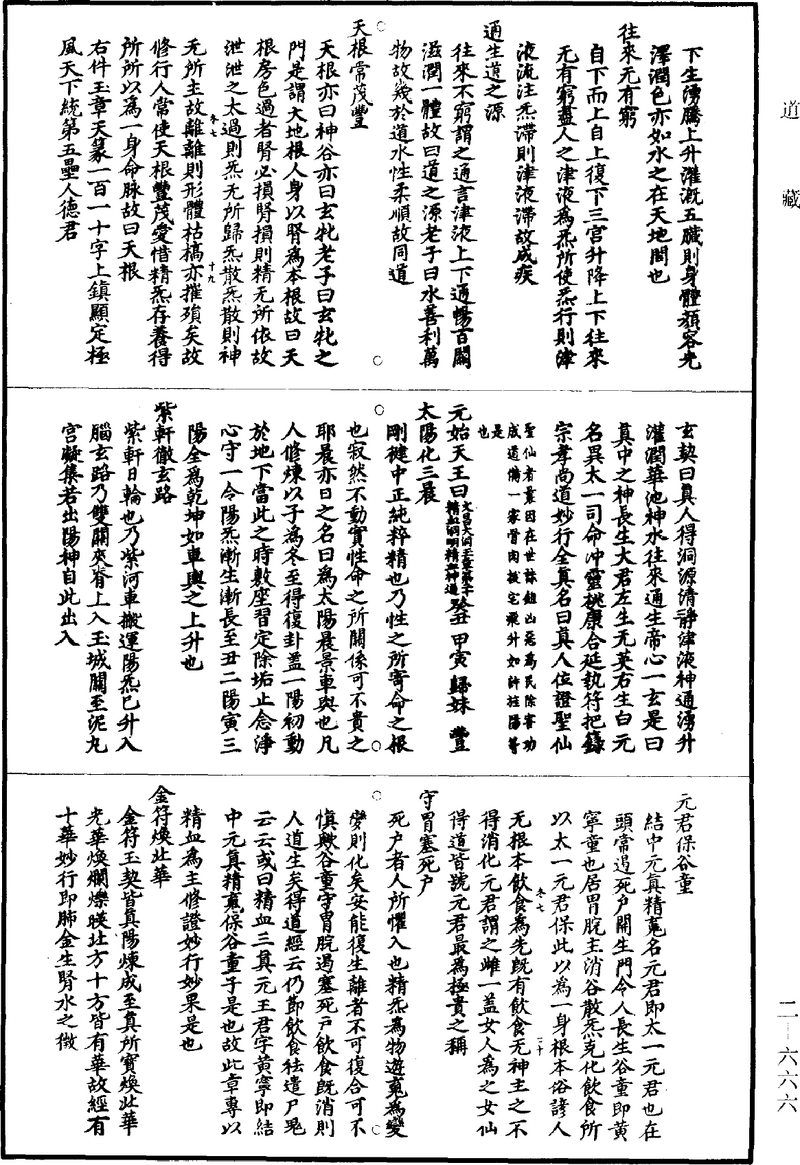 道藏
下生湧騰上升灌溉五臟則身體顏容光
澤潤色亦如水之在天地間也
往來无有窮
自下而上自上復下三宮升降上下往來
无有窮盡人之津液爲炁所使炁行則津
液流注炁滯則津液滯故成疾
通生道之源
往來不窮謂之通言津液上下通暢百關
滋潤一體故曰道之源老子曰水善利萬
物故幾於道水性柔順故同道
天根常茂豐
天根亦曰神谷亦曰玄牝老子曰玄牝之
門是謂天地根人身以腎爲本根故曰天
根房色過者腎必損腎損則精无所依故
泄泄之太過則炁无所歸炁散炁散則神
卷七
十九
无所主故離離則形體枯槁亦摧殞矣故
修行人常使天根豐茂愛惜精炁存養得
所所以爲一身命脉故曰天根
右件玉章天篆一百一十字上鎮顯定極
風天下統第五壘人德君
玄契曰真人得洞源清靜津液神通湧升
灌潤華池神水往來通生帝心一玄是曰
真中之神長生大君左生无英右生白元
名異太一司命冲靈桃康合延執符把籙
宗孝尚道妙行全真名曰真人位證聖仙
聖仙者累因在世誅鉏凶惡爲民除害功
成道備一家骨肉拔宅飛升如許旌陽等
是
也
元始天王曰
癸丑 甲寅 歸妹 豐
太陽化三晨
剛健中正純粹精也乃性之所寄命之根
也寂然不動實性命之所關係可不貴之
耶晨亦日之名曰爲太陽晨景車輿也凡
人修煉以子爲冬至得復卦蓋一陽初動
於地下當此之時敷座習定除垢止念淨
心守一令陽炁漸生漸長至丑二陽寅三
陽全爲乾坤如車輿之上升也
紫軒徹玄路
紫軒日輪也乃紫河車搬運陽炁巳升入
腦玄路乃雙關夾脊上入玉城關至泥丸
宮凝集若出陽神自此出入
元君保谷童
結中元真精寃名元君即太一元君也在
頭常遏死户開生門令人長生谷童即黃
寧童也居胃脘主消谷散炁克化飲食所
以太一元君保此以爲一身根本俗諺人
无根本飲食爲先既有飲食无神主之不
卷七
二十
得消化元君謂之雌一蓋女人爲之女仙
得道皆號元君最爲極貴之稱
守胃塞死户
死户者人所懼入也精炁爲物遊寃爲變
變則化矣安能復生離者不可復合可不
慎歟谷童守胃脘遏塞死户飲食既消則
人道生矣得道經云仍節飲食祛遣尸鬼
云云或曰精血三真元王君字黃寧即結
中元真精寃保谷童子是也故此章專以
精血爲主修證妙行妙果是也
金符煥北華
金符玉契皆真陽煉成至真所寶煥北華
光華煥爛爍暎北方十方皆有華故經有
十華妙行即肺金生腎水之徵
二—六六六